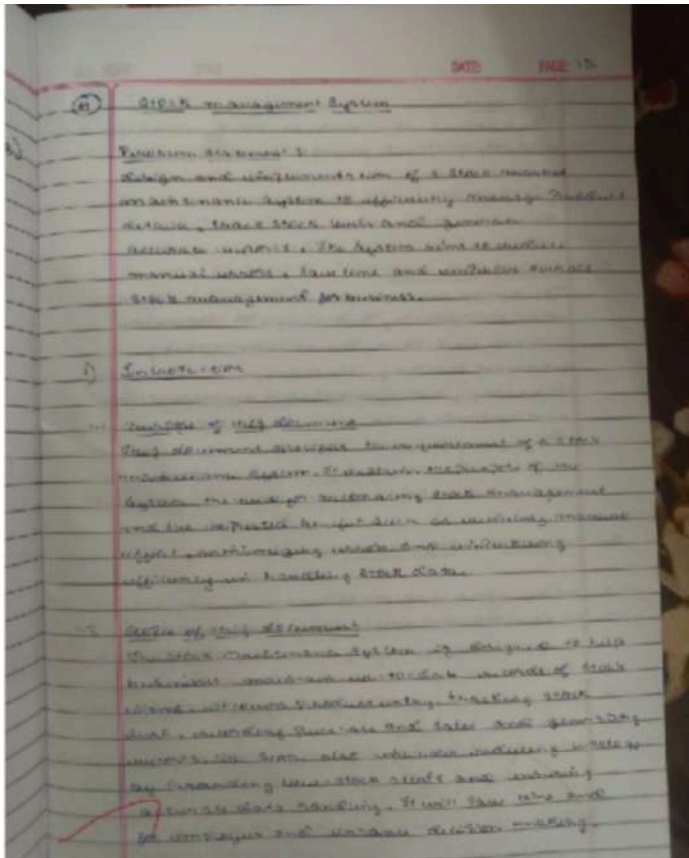 DATE: PAGE: 15
Stock management System
Problem statement :
design and implementation of a stock
maintenance system to efficiently manage Product
details, track stock levels and generate
accurate reports. The System aims to reduce
manual errors, save time and
stock management for business.
1) Introduction
Purpose of this document
This document describes the requirement of a stock
maintenance system. It the of the
System, the need for automating stock management
and the expected benefit such as reducing manual
effort, errors and
efficiency in handling stock data.
Scope of this document
The stock maintenance System is designed to help
businesses maintain up-to-date records of stock
tracking stock
level, recording Purchase and sales and generating
reports. also reducing
by low stock alerts and
accurate data handling. It will save time
for employees and decision making.